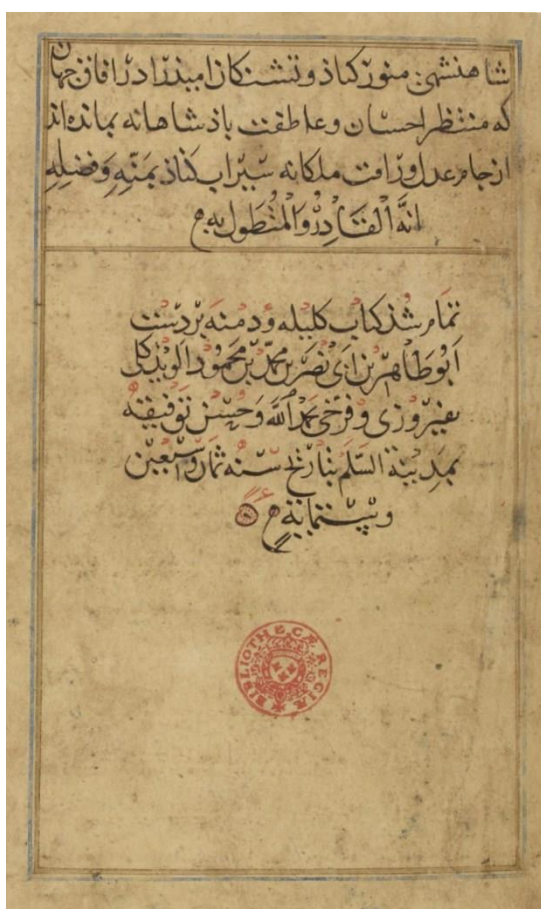 شاهنشهی منور کناذ و تشنکان امیذ را در افاق جهان
که منتظر احسان و عاطفت باذشاهانه بمانده‌اند
از جام عدل و رافت ملکانه سیراب کناذ بمَنّه وَفضلِه
انّه القَادِرُ وَالمُتَطَول به
تمام شذ کتاب کلیله و دمنه بر دست
ابو طاهر بن ابی نصر بن محمد بن محمود
بفیروزی و فرخی بحمد الله وحسن توفیقه
بمدینة السلم بتاریخ سنه ثمان وسبعین
وستمایة
BIBLIOTHECÆ REGIÆ